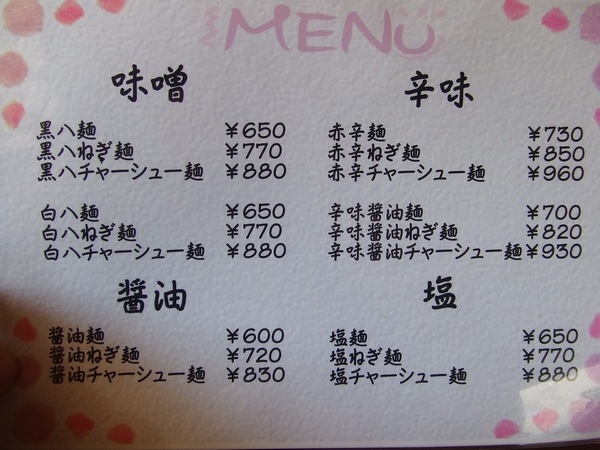 MENU
味噌
黒八麺 ¥650
黒八ねぎ麺 ¥770
黒八チャーシュー麺 ¥880
白八麺 ¥650
白八ねぎ麺 ¥770
白八チャーシュー麺 ¥880
醤油
醤油麺 ¥600
醤油ねぎ麺 ¥720
醤油チャーシュー麺 ¥830
辛味
赤辛麺 ¥730
赤辛ねぎ麺 ¥850
赤辛チャーシュー麺 ¥960
辛味醤油麺 ¥700
辛味醤油ねぎ麺 ¥820
辛味醤油チャーシュー麺 ¥930
塩
塩麺 ¥650
塩ねぎ麺 ¥770
塩チャーシュー麺 ¥880